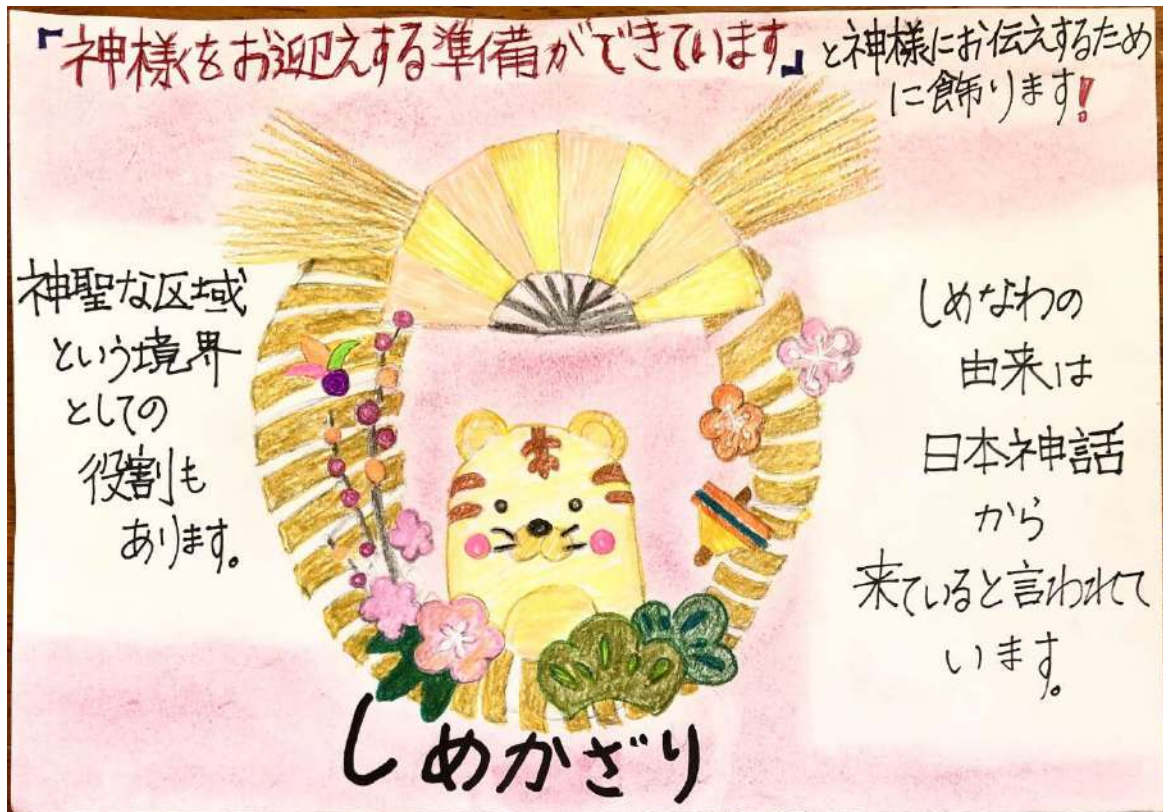 『神様をお迎えする準備ができています』と神様にお伝えするため
に飾ります!
神聖な区域
という境界
としての
役割も
あります。
しめなわの
由来は
日本神話
から
来ていると言われて
います。
しめかざり